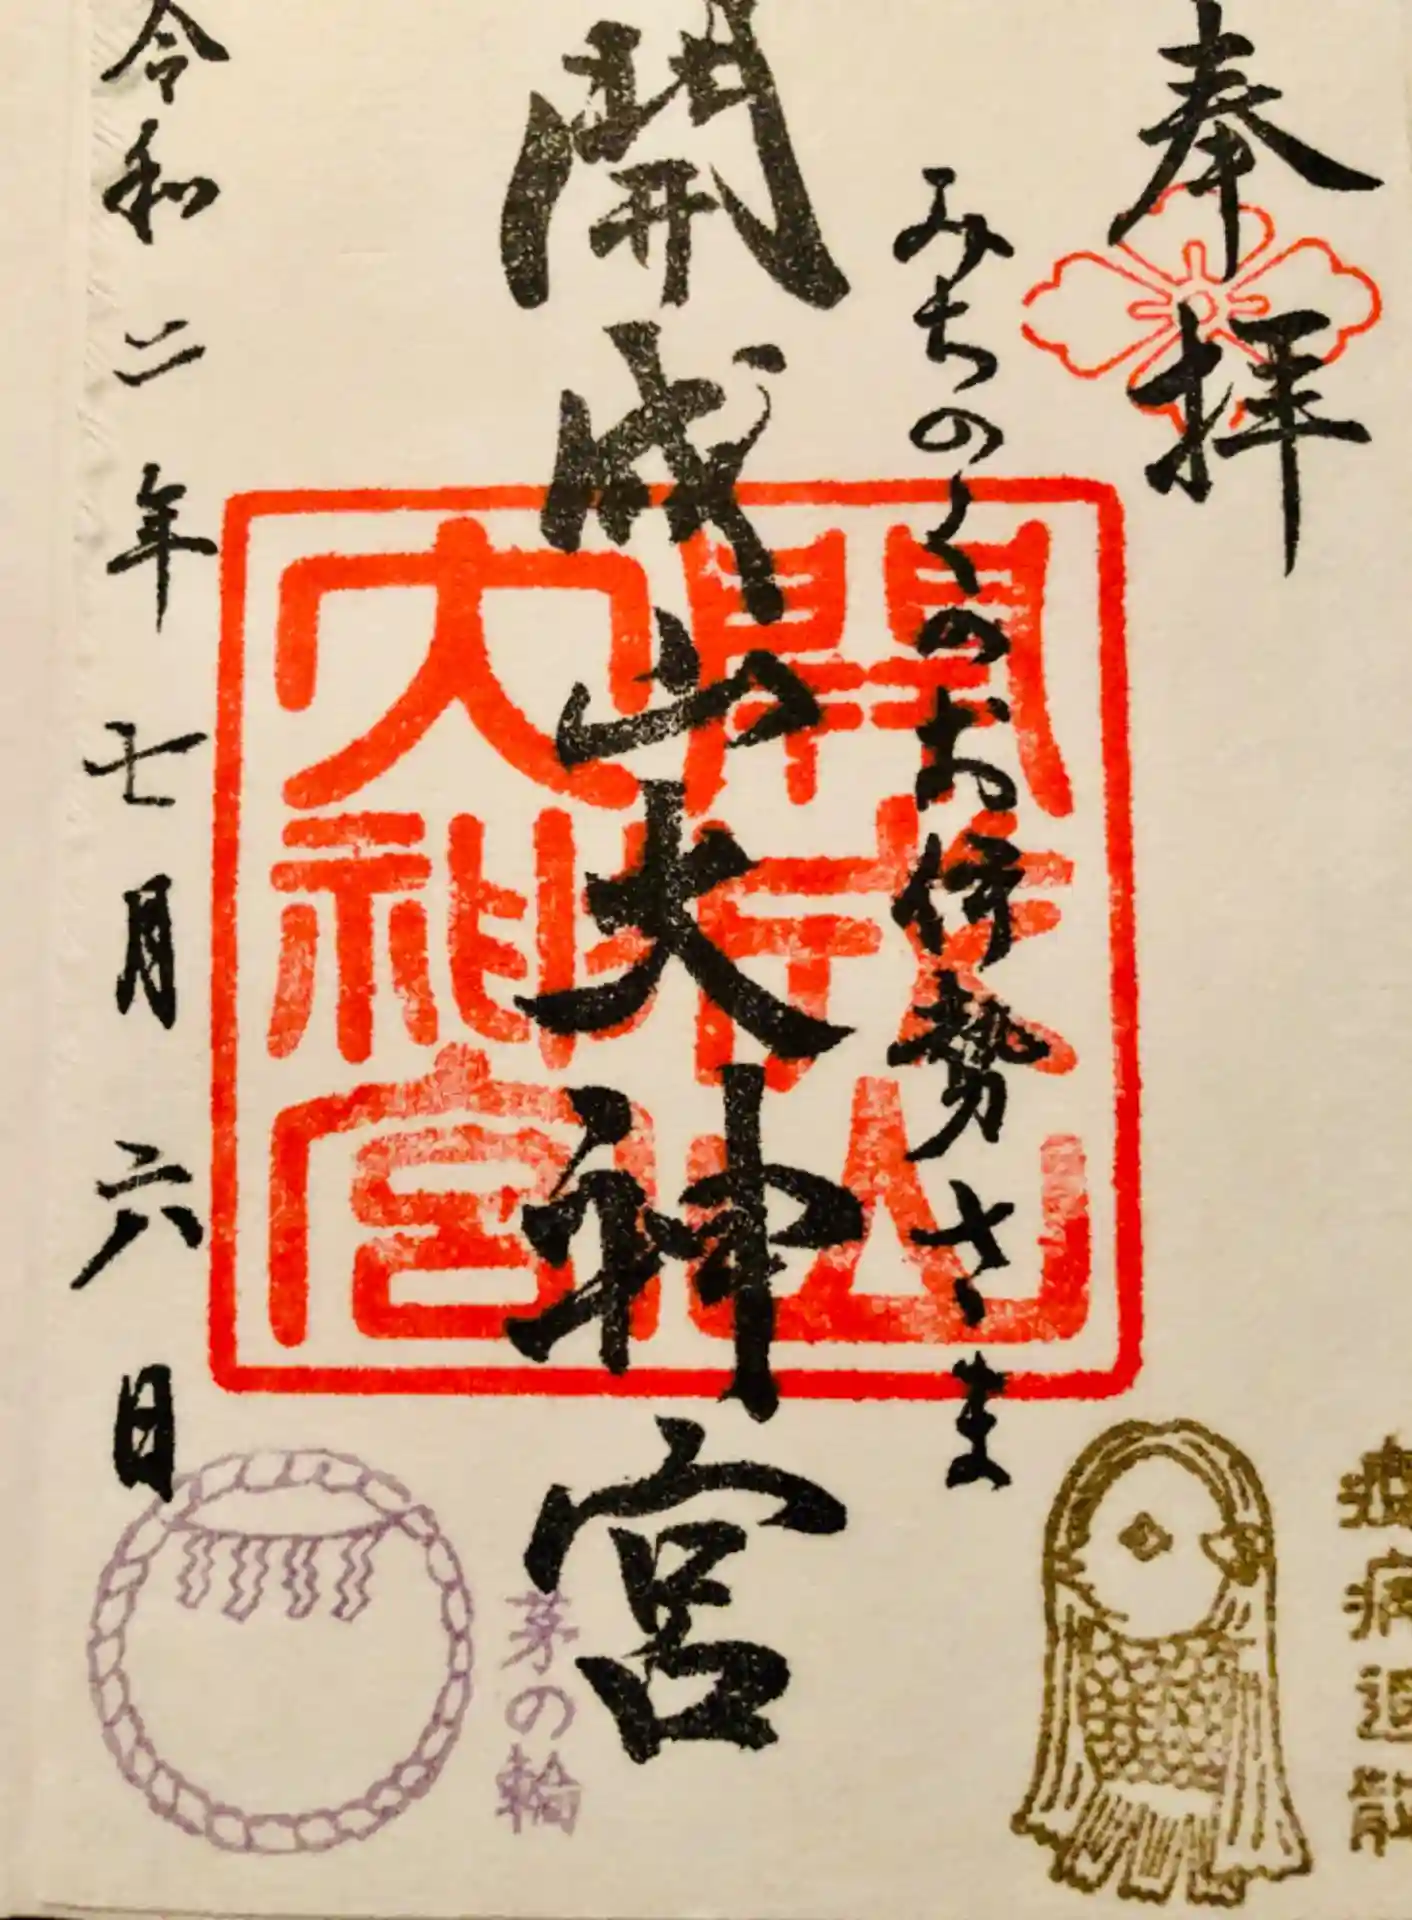 奉拝
みちのくのお伊勢さま
開成山大神宮
令和二年七月六日
開成山
大神宮
茅の輪
疫病退散